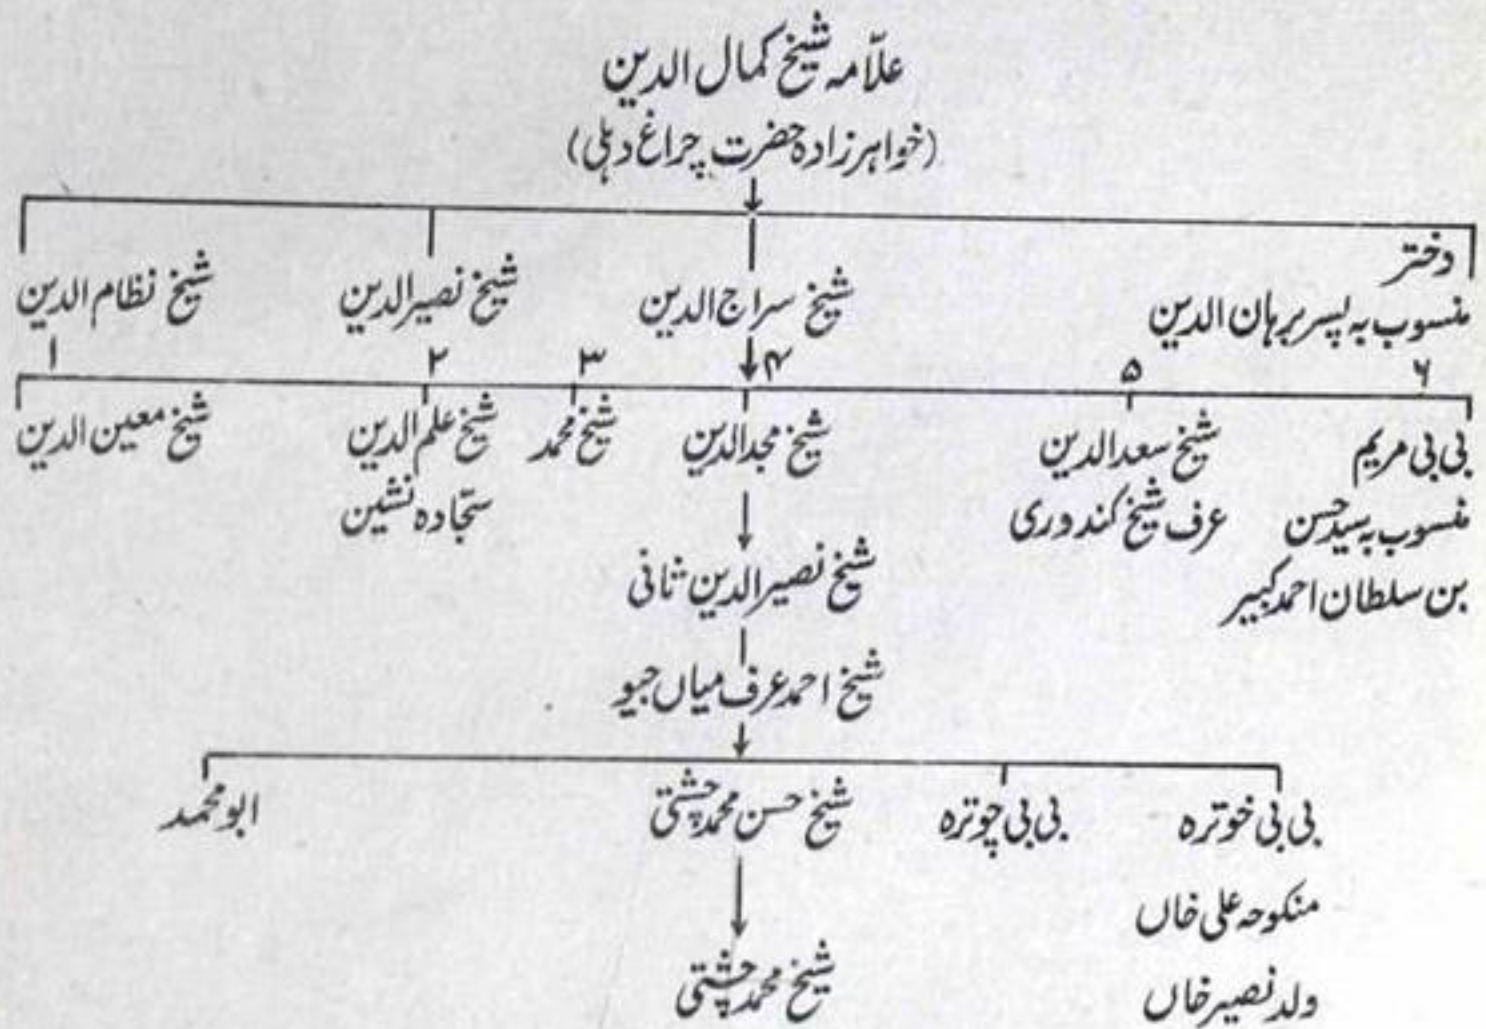 علّامہ شیخ کمال الدین
(خواہرزادہ حضرت چراغ دہلی)
دختر
منسوب بہ پسر برہان الدین
شیخ سراج الدین
شیخ نصیر الدین
شیخ نظام الدین
۶ ۵ ۴ ۳ ۲ ۱
بی بی مریم
منسوب بہ سید حسن
بن سلطان احمد کبیر
شیخ سعد الدین
عرف شیخ کندوری
شیخ مجد الدین
شیخ محمد
شیخ علم الدین
سجّادہ نشین
شیخ معین الدین
شیخ نصیر الدین ثانی
شیخ احمد عرف میاں جیو
بی بی خوترہ
منکوحہ علی خاں
ولد نصیر خاں
بی بی چوترہ
شیخ حسن محمد چشتی
ابو محمد
شیخ محمد چشتی